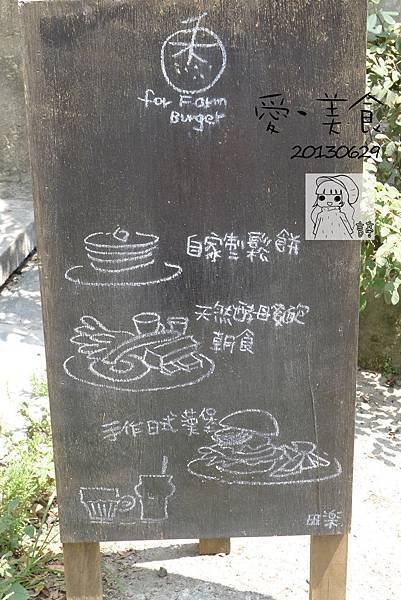 for Farm
Burger
愛、美食
20130629
自家製鬆餅
天然酵母麵包
朝食
手作日式漢堡
田樂